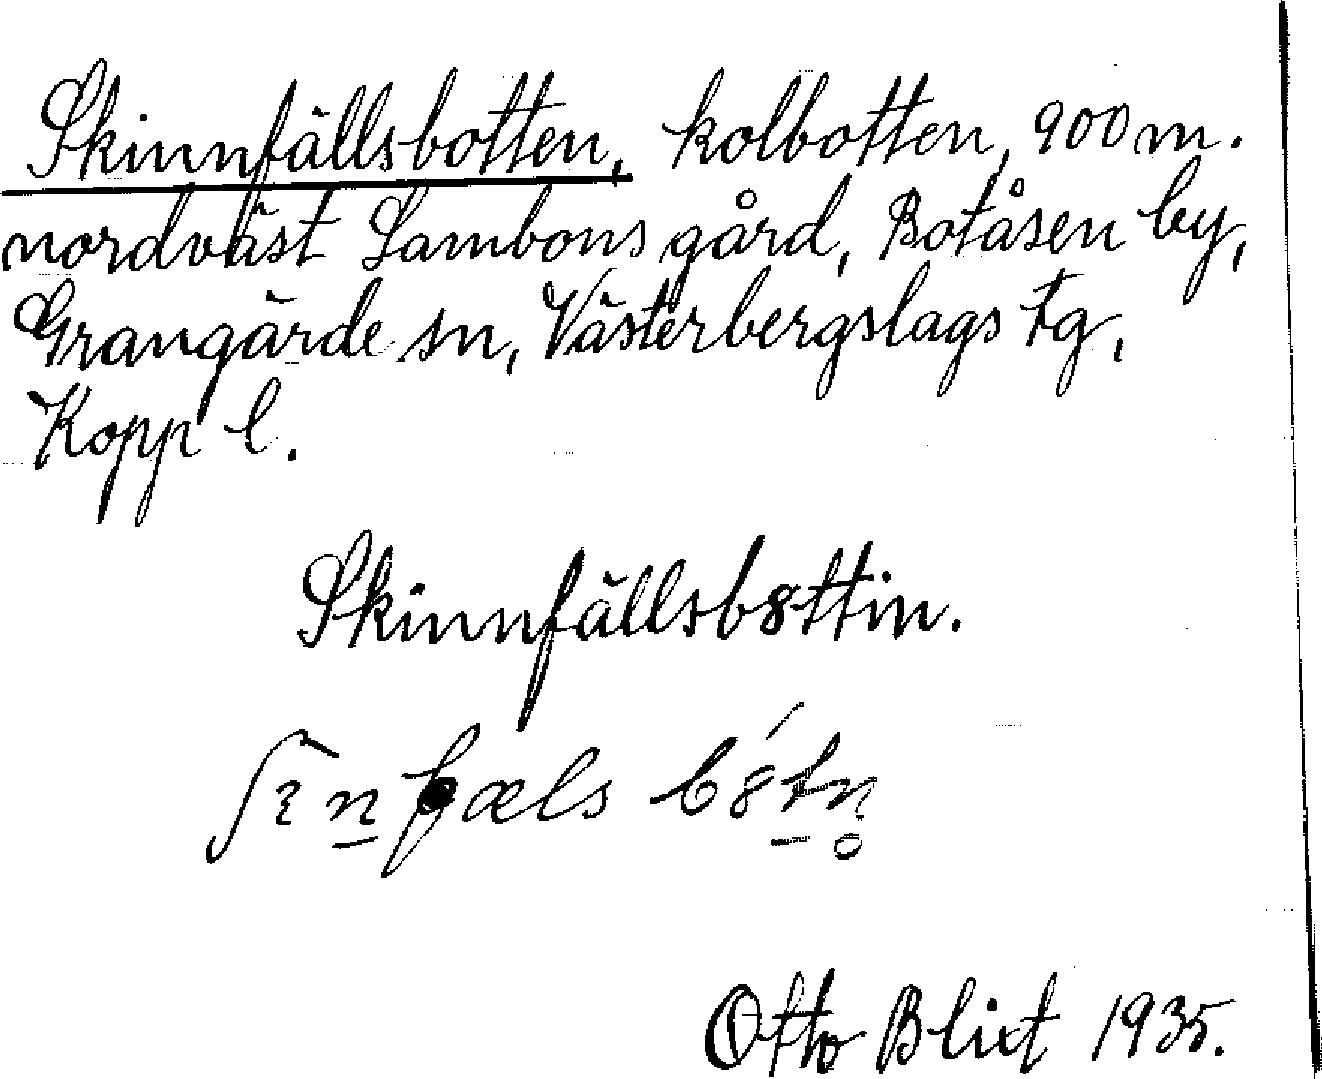 Skinnfällsbotten, kolbotten, 900 m.
nordväst Lambons gård, Botåsen by,
Grangärde sn, Västerbergslags fg,
Kopp l.
Skinnfällsb8ttin.
Otto Blixt 1935.